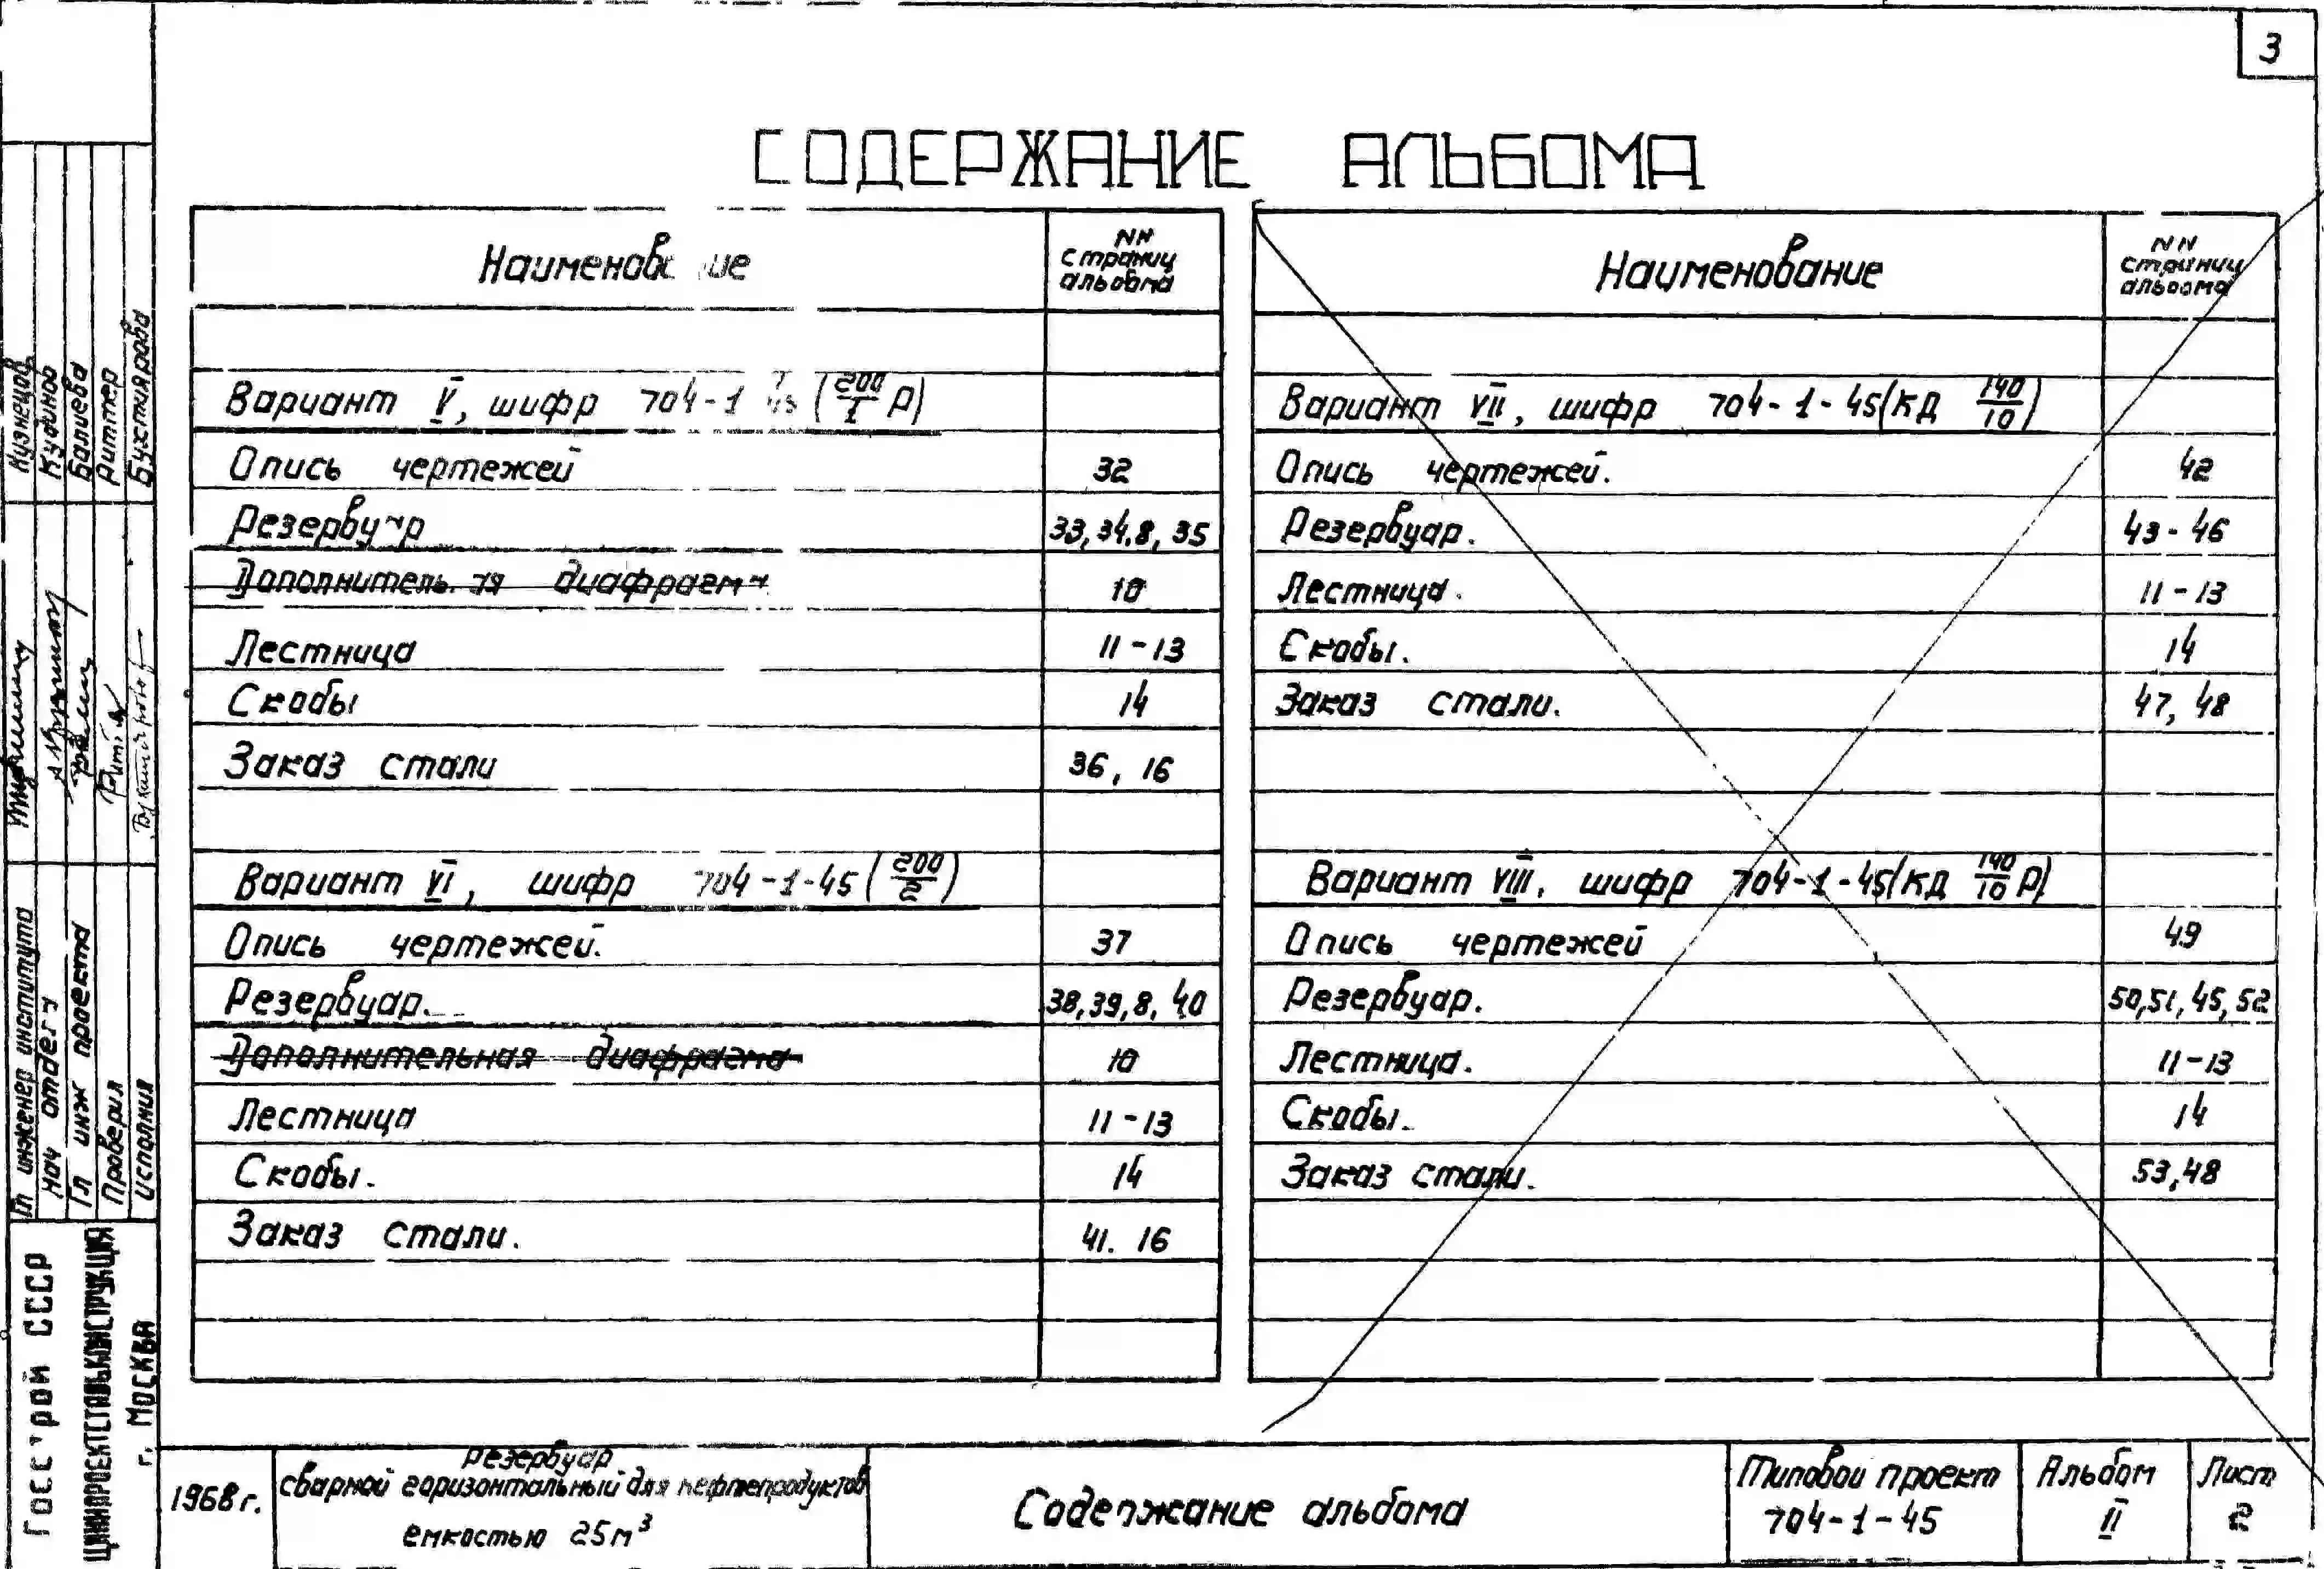 3
СОДЕРЖАНИЕ АЛЬБОМА
Наименование
NN
страниц
альбома
Вариант V, шифр 704-1-45 (200/1 Р)
Опись чертежей 32
Резервуар 33, 34, 8, 35
Дополнительная диафрагма 10
Лестница 11-13
Скобы 14
Заказ стали 36, 16
Вариант VI, шифр 704-1-45 (200/2)
Опись чертежей. 37
Резервуар. 38, 39, 8, 40
Дополнительная диафрагма 10
Лестница 11-13
Скобы. 14
Заказ стали. 41. 16
Наименование
NN
страниц
альбома
Вариант VII, шифр 704-1-45 (КД 140/10)
Опись чертежей. 42
Резервуар. 43-46
Лестница. 11-13
Скобы. 14
Заказ стали. 47, 48
Вариант VIII, шифр 704-1-45 (КД 140/10 Р)
Опись чертежей 49
Резервуар. 50, 51, 45, 52
Лестница. 11-13
Скобы. 14
Заказ стали. 53, 48
Гл инженер института Кузнецов
Нач отдела
Гл инж проекта Балиева
Проверил Риттер
Исполнил Бухтиярова
Госстрой СССР
ЦНИИПРОЕКТСТАЛЬКОНСТРУКЦИЯ
г. Москва
1968 г.
Резервуар
сварной горизонтальный для нефтепродуктов
емкостью 25 м³
Содержание альбома
Типовой проект
704-1-45
Альбом
II
Лист
2